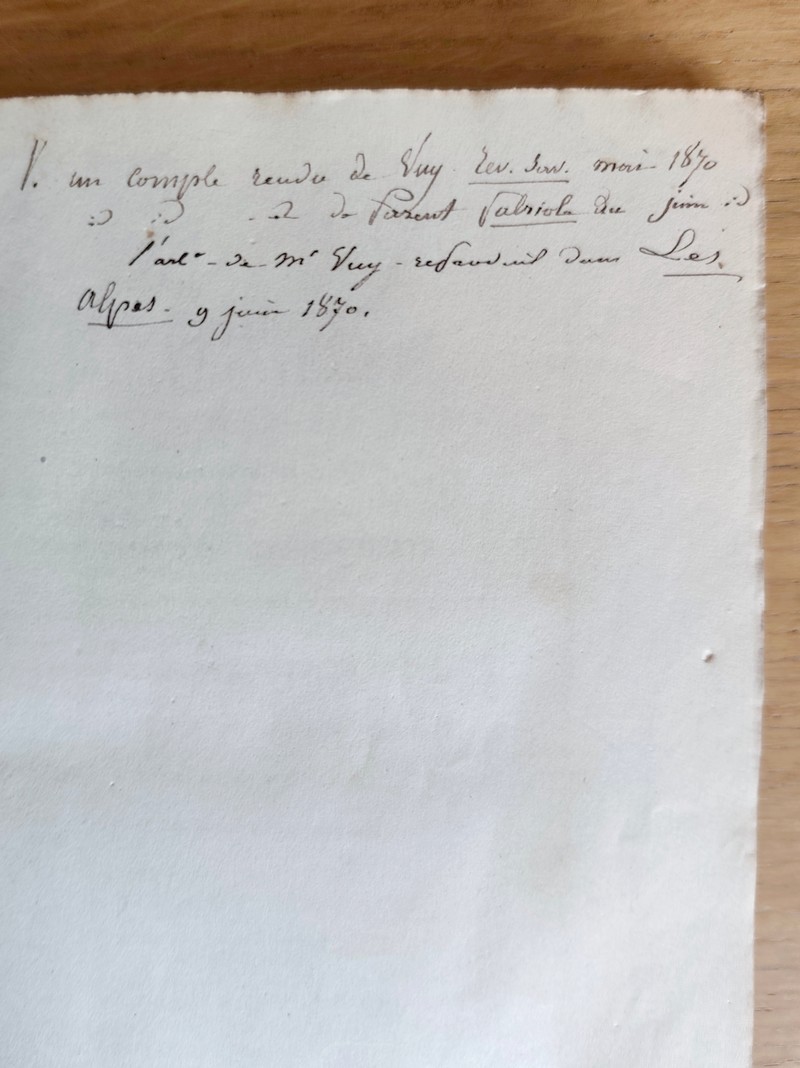 V. un compte rendu de Vuy Rev. Sav. mai 1870
id id id de Parent du juin id
l'art^e de M^r Vuy reproduit dans Les
Alpes. 9 juin 1870.